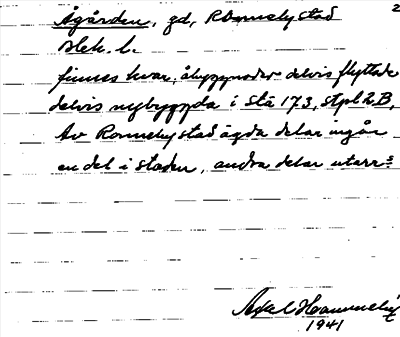 2
Ågården, gd, Ronneby stad
Blek. l.
finnes kvar, åbyggnader delvis flyttade
delvis nybyggda i stä 173, stpl 2B,
Av Ronneby stad ägda delar ingår
en del i staden, andra delar utarr=
Axel
1941